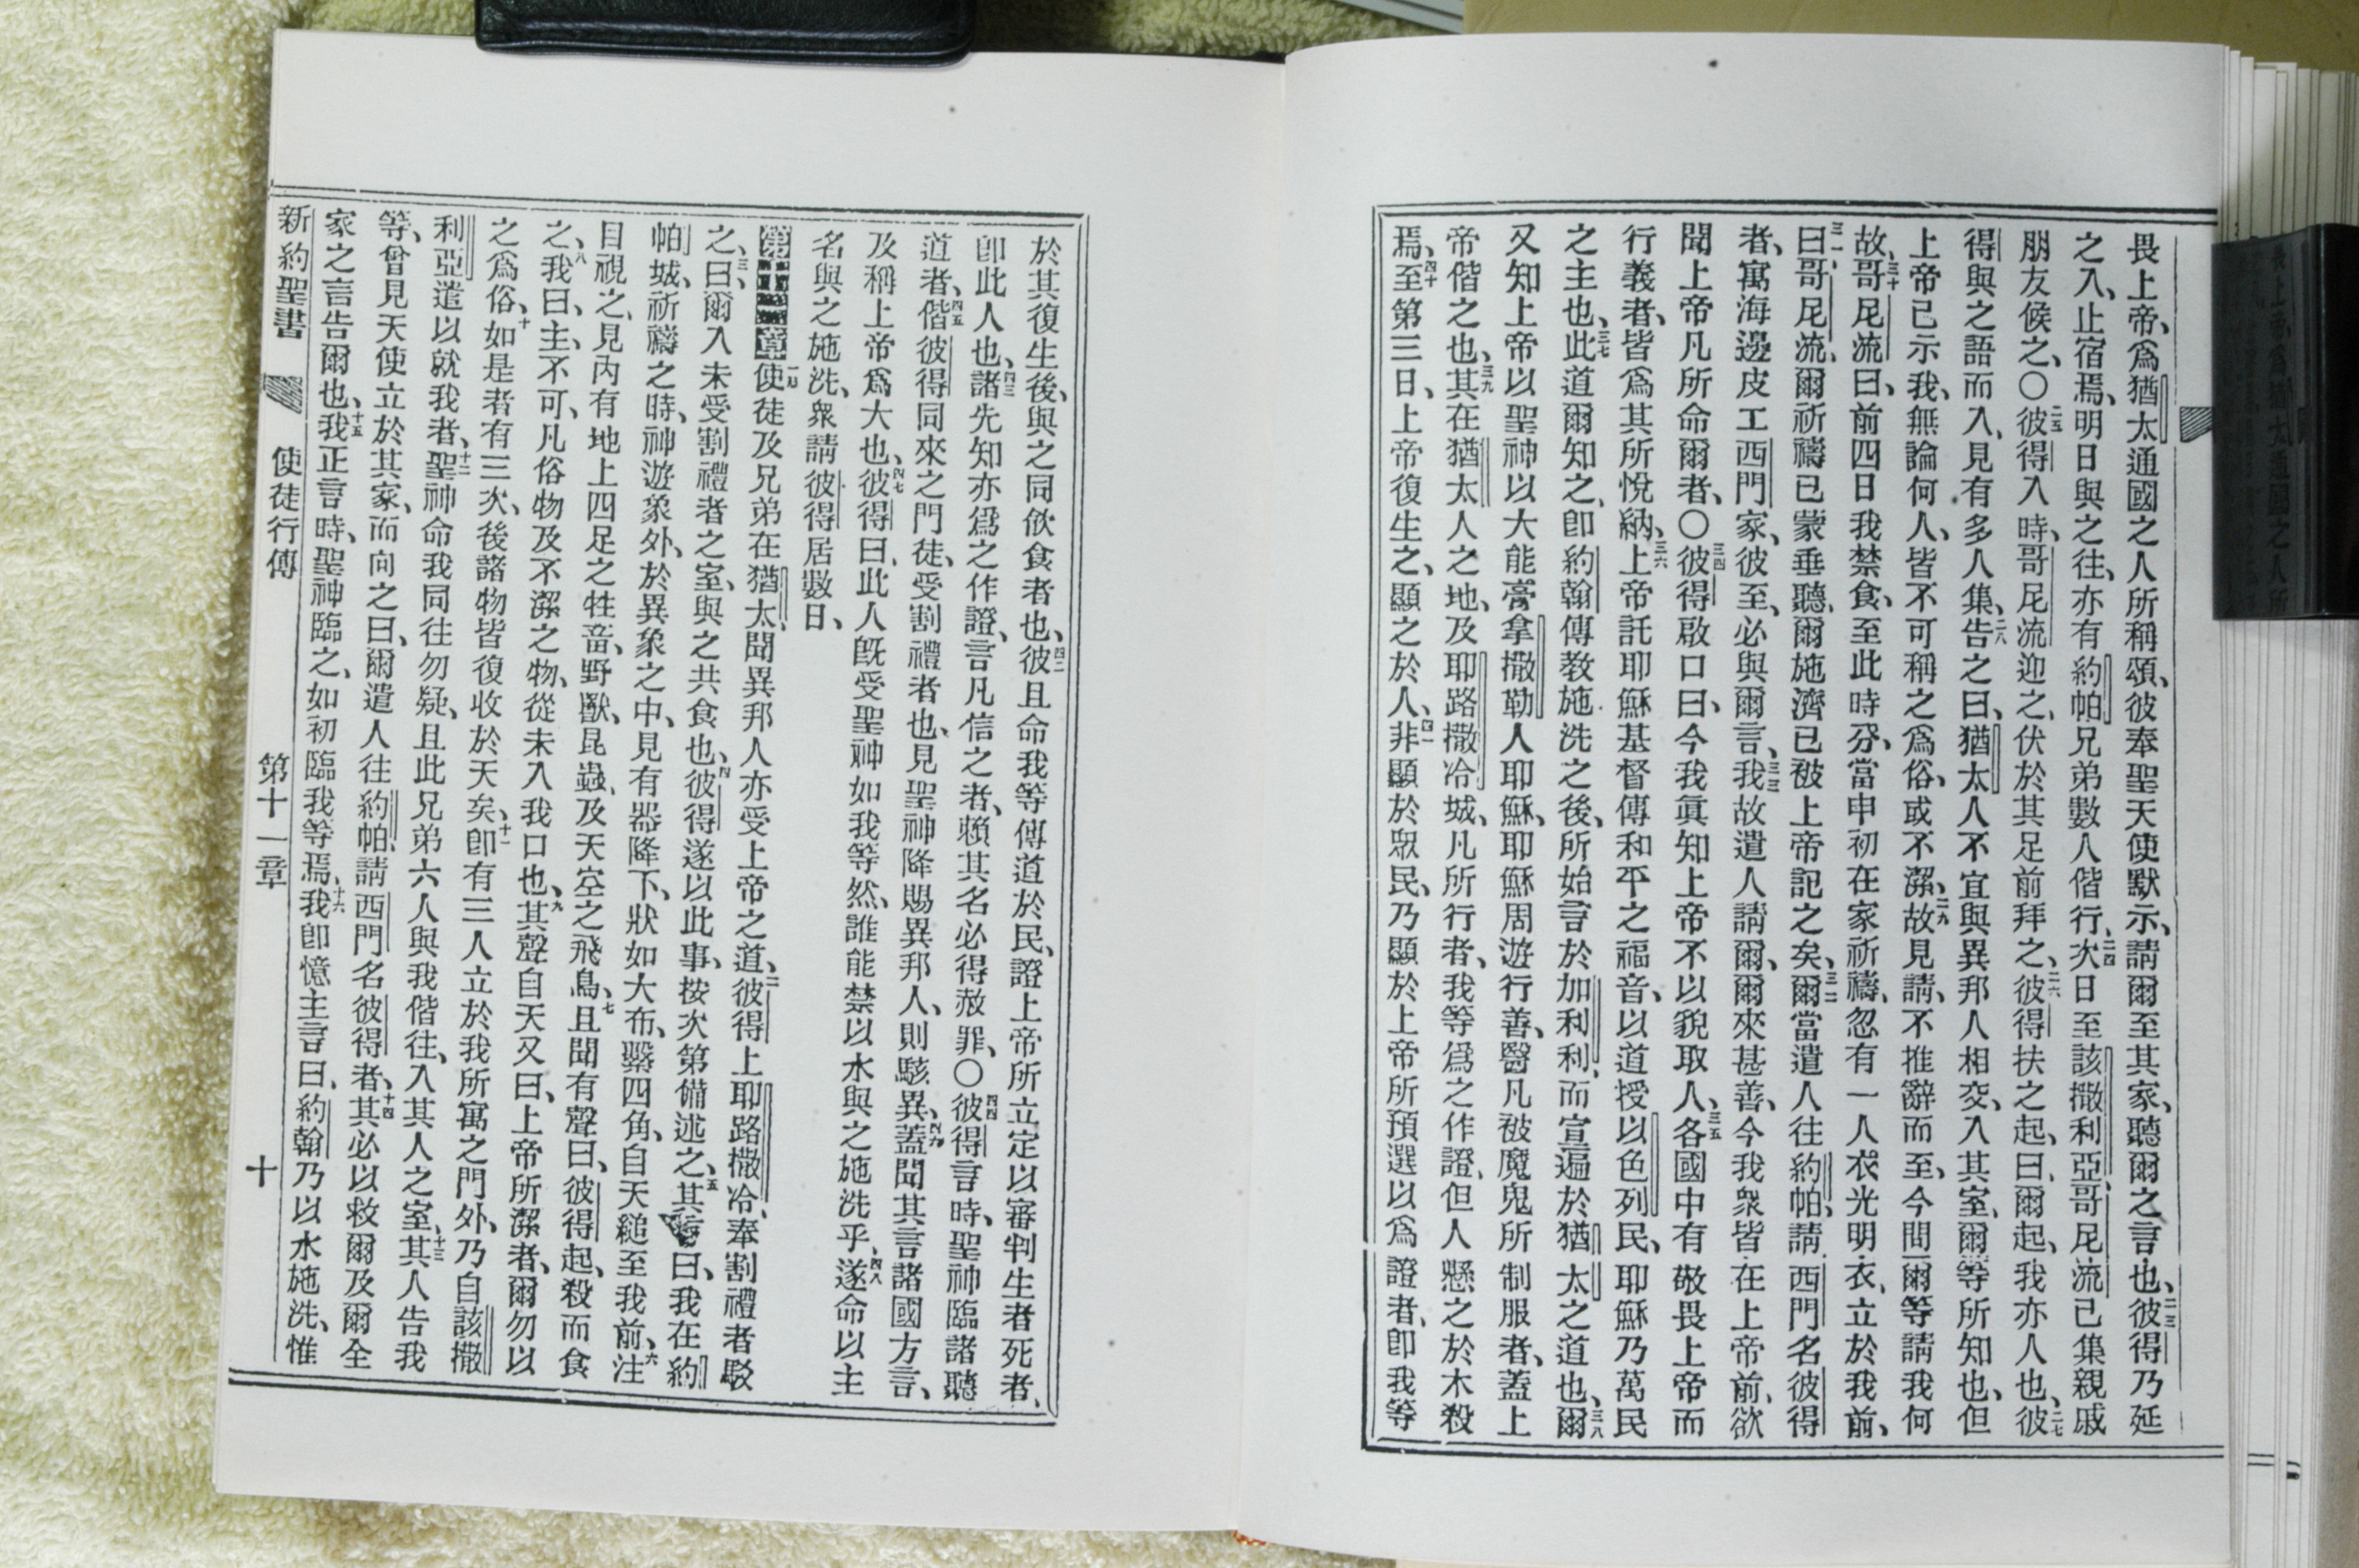 畏上帝、爲猶太通國之人所稱頌、彼奉聖天使默示、請爾至其家、聽爾之言也、二三彼得乃延
之入、止宿焉、明日與之往、亦有約帕兄弟數人偕行、二四次日至該撒利亞、哥尼流已集親戚
朋友候之、〇二五彼得入時、哥尼流迎之、伏於其足前拜之、二六彼得扶之起、曰、爾起、我亦人也、二七彼
得與之語而入、見有多人集、二八告之曰、猶太人不宜與異邦人相交、入其室、爾等所知也、但
上帝已示我、無論何人、皆不可稱之爲俗、或不潔、二九故見請、不推辭而至、今問爾等請我何
故、三十哥尼流曰、前四日我禁食、至此時分、當申初在家祈禱、忽有一人衣光明衣、立於我前、
三一曰、哥尼流、爾祈禱已蒙垂聽、爾施濟已被上帝記之矣、三二爾當遣人往約帕、請西門名彼得
者、寓海邊皮工西門家、彼至、必與爾言、三三我故遣人請爾、爾來甚善、今我衆皆在上帝前、欲
聞上帝凡所命爾者、〇三四彼得啟口曰、今我眞知上帝不以貌取人、三五各國中有敬畏上帝而
行義者、皆爲其所悅納、三六上帝託耶穌基督傳和平之福音、以道授以色列民、耶穌乃萬民
之主也、三七此道爾知之、卽約翰傳教施洗之後、所始言於加利利、而宣遍於猶太之道也、三八爾
又知上帝以聖神以大能膏拿撒勒人耶穌、耶穌周遊行善、醫凡被魔鬼所制服者、蓋上
帝偕之也、三九其在猶太人之地、及耶路撒冷城、凡所行者、我等爲之作證、但人懸之於木殺
焉、四十至第三日、上帝復生之、顯之於人、四一非顯於眾民、乃顯於上帝所預選以爲證者、卽我等
於其復生後、與之同飮食者也、四二彼且命我等傳道於民、證上帝所立定以審判生者死者、
卽此人也、四三諸先知亦爲之作證、言凡信之者、賴其名必得赦罪、〇四四彼得言時、聖神臨諸聽
道者、四五偕彼得同來之門徒、受割禮者也、見聖神降賜異邦人、則駭異、四六蓋聞其言諸國方言、
及稱上帝爲大也、四七彼得曰、此人旣受聖神如我等然、誰能禁以水與之施洗乎、四八遂命以主
名與之施洗、衆請彼得居數日、
第十一章一節使徒及兄弟在猶太、聞異邦人亦受上帝之道、二彼得上耶路撒冷、奉割禮者駁
之、三曰、爾入未受割禮者之室、與之共食也、四彼得遂以此事、按次第備述之、五其言曰、我在約
帕城祈禱之時、神遊象外、於異象之中、見有器降下、狀如大布、繫四角、自天縋至我前、六注
目視之、見內有地上四足之牲畜、野獸、昆蟲、及天空之飛鳥、七且聞有聲曰、彼得起、殺而食
之、八我曰、主、不可、凡俗物及不潔之物、從未入我口也、九其聲自天又曰、上帝所潔者、爾勿以
之爲俗、十如是者有三次、後諸物皆復收於天矣、十一卽有三人立於我所寓之門外、乃自該撒
利亞遣以就我者、十二聖神命我同往勿疑、且此兄弟六人與我偕往、入其人之室、十三其人告我
等、曾見天使立於其家、而向之曰、爾遣人往約帕、請西門名彼得者、十四其必以救爾及爾全
家之言告爾也、十五我正言時、聖神臨之、如初臨我等焉、十六我卽憶主言曰、約翰乃以水施洗、惟
新約聖書 使徒行傳 第十一章 十